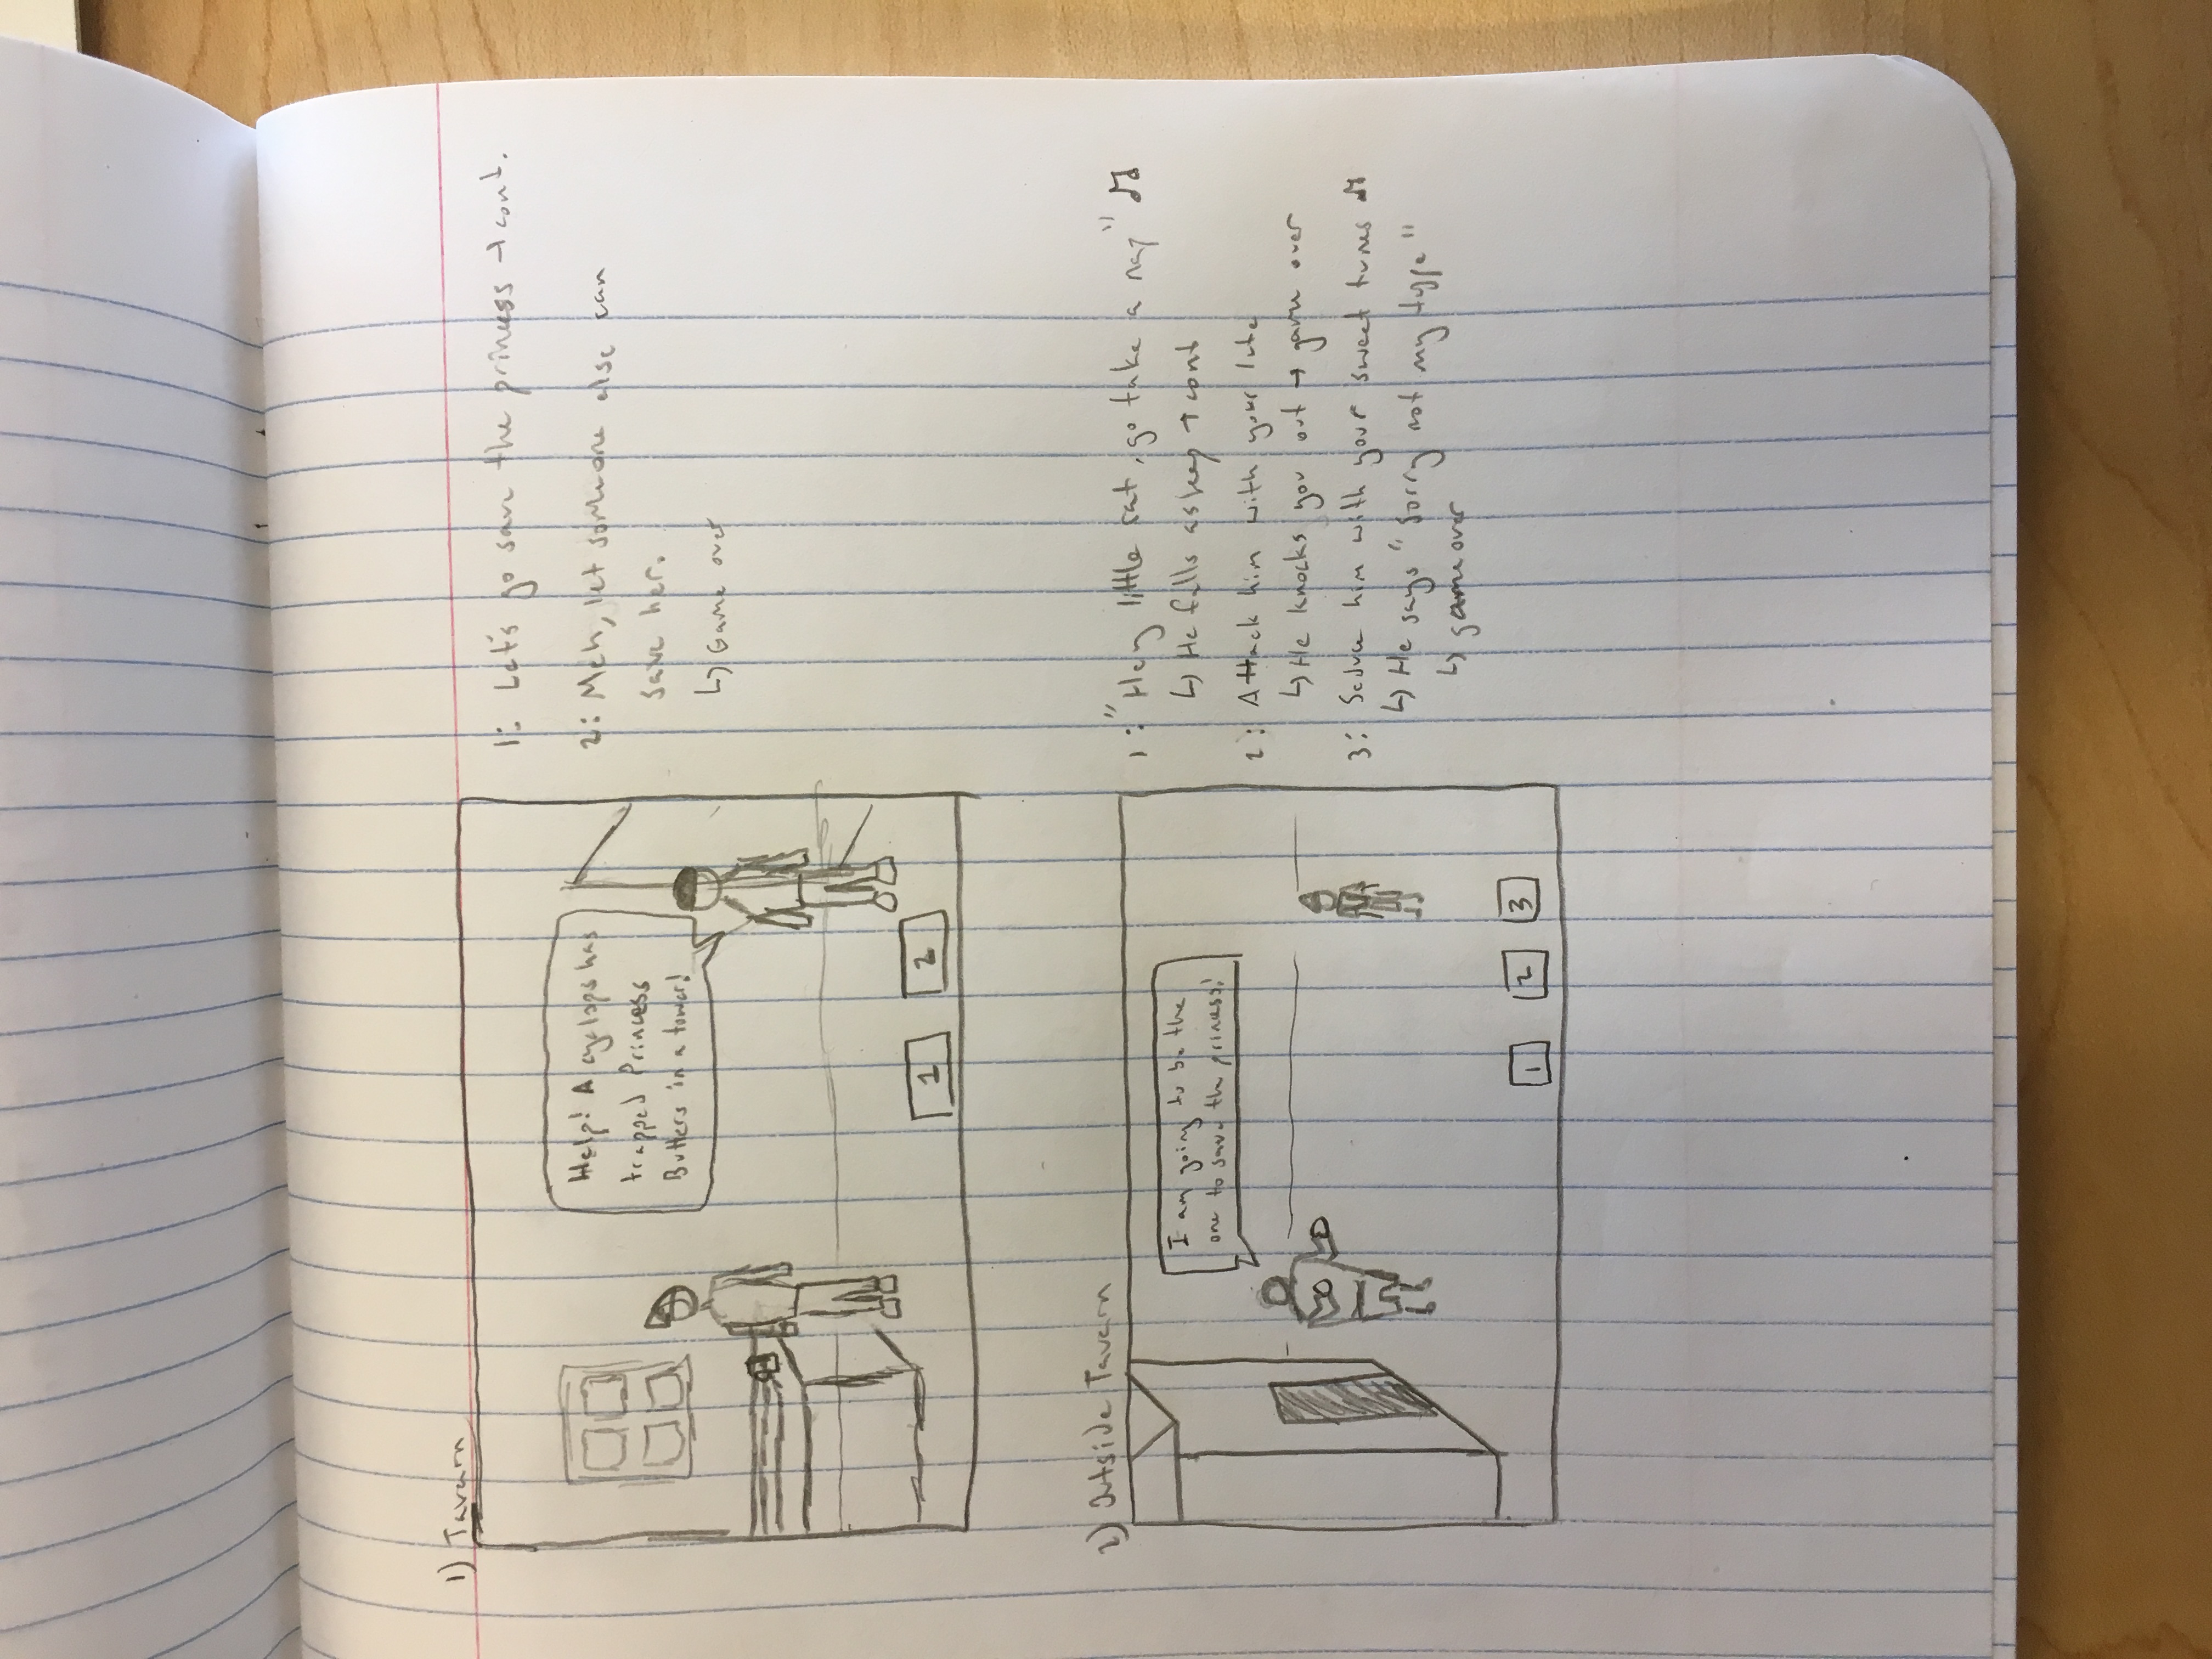 1) Tavern
Help! A cyclops has
trapped Princess
Butters in a tower!
1
2
1: Let's go save the princess → cont.
2: Meh, let someone else can
save her.
↳ Game over
2) Outside Tavern
I am going to be the
one to save the princess!
1
2
3
1: "Hey little rat, go take a nap" ♫
↳ He falls asleep → cont
2: Attack him with your lute
↳ He knocks you out → game over
3: Seduce him with your sweet tunes ♫
↳ He says "Sorry not my type"
↳ game over